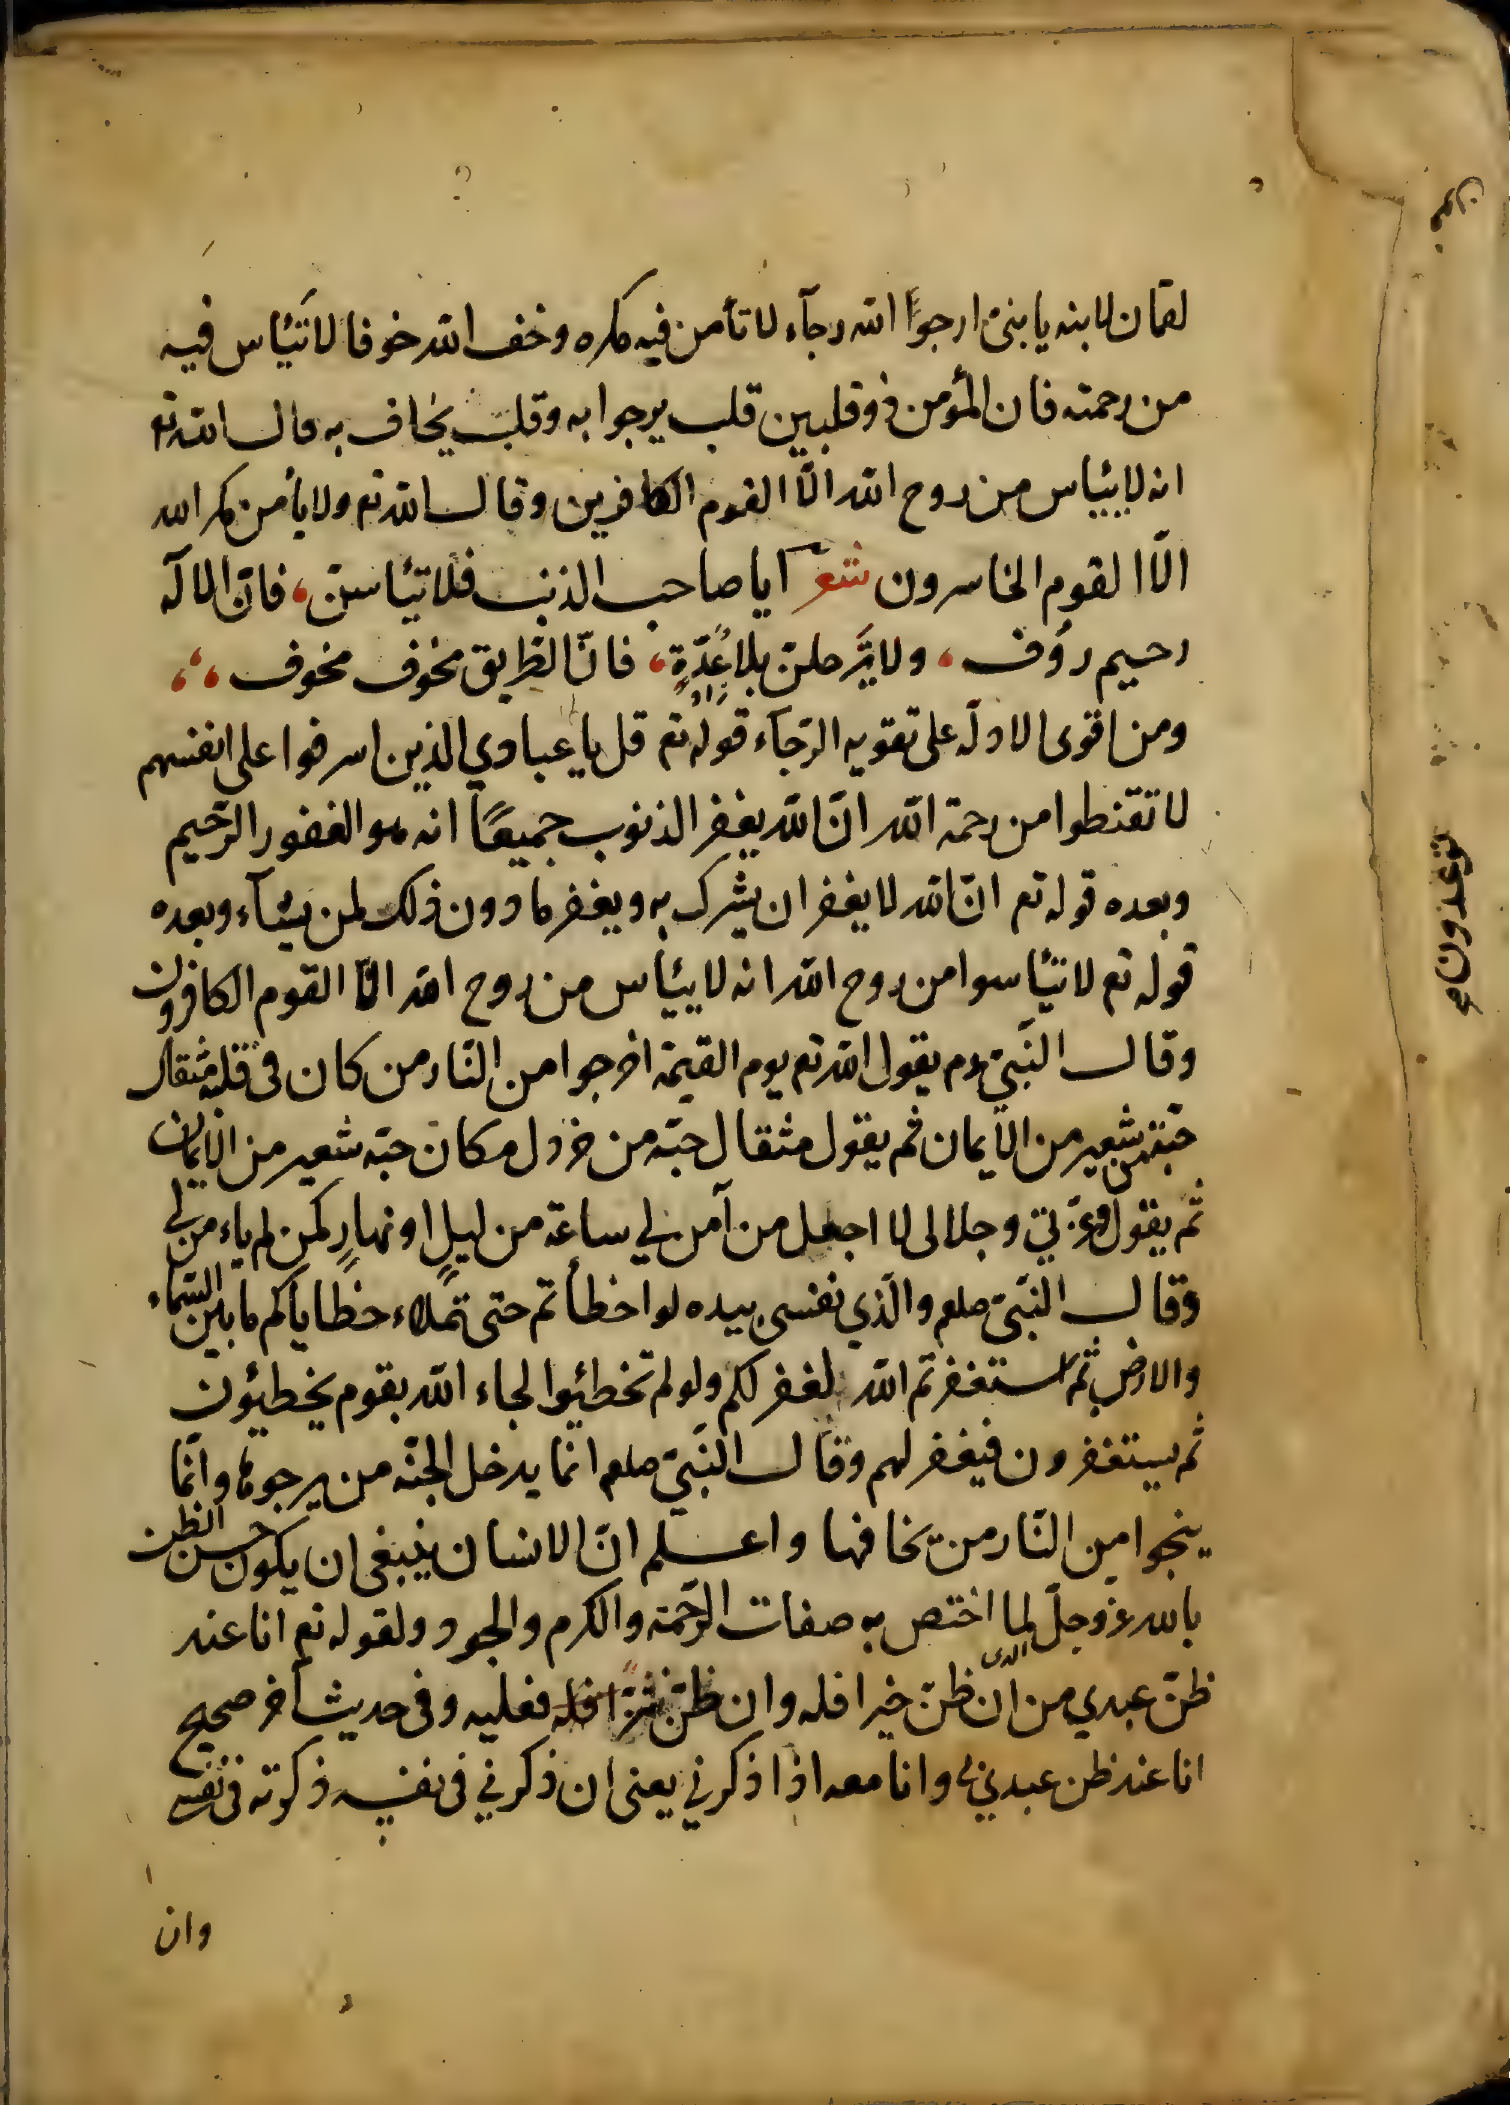 لقمان لابنه يا بنى ارجوا الله رجآء لا تأمن فيه مكره وخف الله خوفا لا تيئاس فيه
من رحمته فان المؤمن ذو قلبين قلب يرجوا به وقلب يخاف به قال الله تع
انه لا ييئاس من روح الله الّا القوم الكافرين وقال الله تع ولا يأمن مكر الله
الّا القوم الخاسرون شعر ايا صاحب الذنب فلا تيئاسنّ، فانّ الالآه
رحيم رؤف، ولا تَرحلنّ بلا عُدّةٍ، فانّ الطّريق مخوف مخوف،،،
زادٍ
ومن اقوى الادلّه على تقويه الرّجآء قوله تع قل يا عبادي الذين اسرفوا على انفسهم
لا تقنطوا من رحمة الله انّ الله يغفر الذنوب جميعًا انه هو الغفور الرّحيم
وبعده قوله تع انّ الله لا يغفر ان يشرك به ويغفر ما دون ذلك لمن يشآء وبعده
قوله تع لا تيئاسوا من روح الله انه لا ييئاس من روح الله الّا القوم الكافرون
وقال النّبىّ عم يقول الله تع يوم القيمة اخرجوا من النّار من كان فى قلبه مثقال
حبّة من شعير من الايمان ثم يقول مثقال حبّه من خردل مكان حبّه شعير من الايمان
ثم يقول وعزّتي وجلالى لا اجعل من آمن لي ساعة من ليلٍ او نهارٍ كمن لم ياءمن لي
وقال النّبىّ صلعم والّذي نفسى بيده لو اخطأتم حتى تملاء خطاياكم ما بين السّماء
والارض ثم استغفرتم الله لغفر لكم ولو لم تخطئوا لجاء الله بقوم يخطيؤن
ثم يستغفرون فيغفر لهم وقال النّبىّ صلعم انما يدخل الجنّه من يرجوها وانّما
ينجوا من النّار من يخافها واعلم انّ الانسان ينبغى ان يكون حسن الظن
بالله عزّوجلّ لما اختص به صفات الرّحمة والكرم والجود ولقوله تع انا عند
ظنّ عبدي من ان ظنّ خيرا فله وان ظنّ شرّا فله فعليه وفى حديث آخر صحيح
انا عند ظن عبدي بي وانا معه اذا ذكرني يعنى ان ذكرني فى نفسه ذكرته فى نفسه
وان